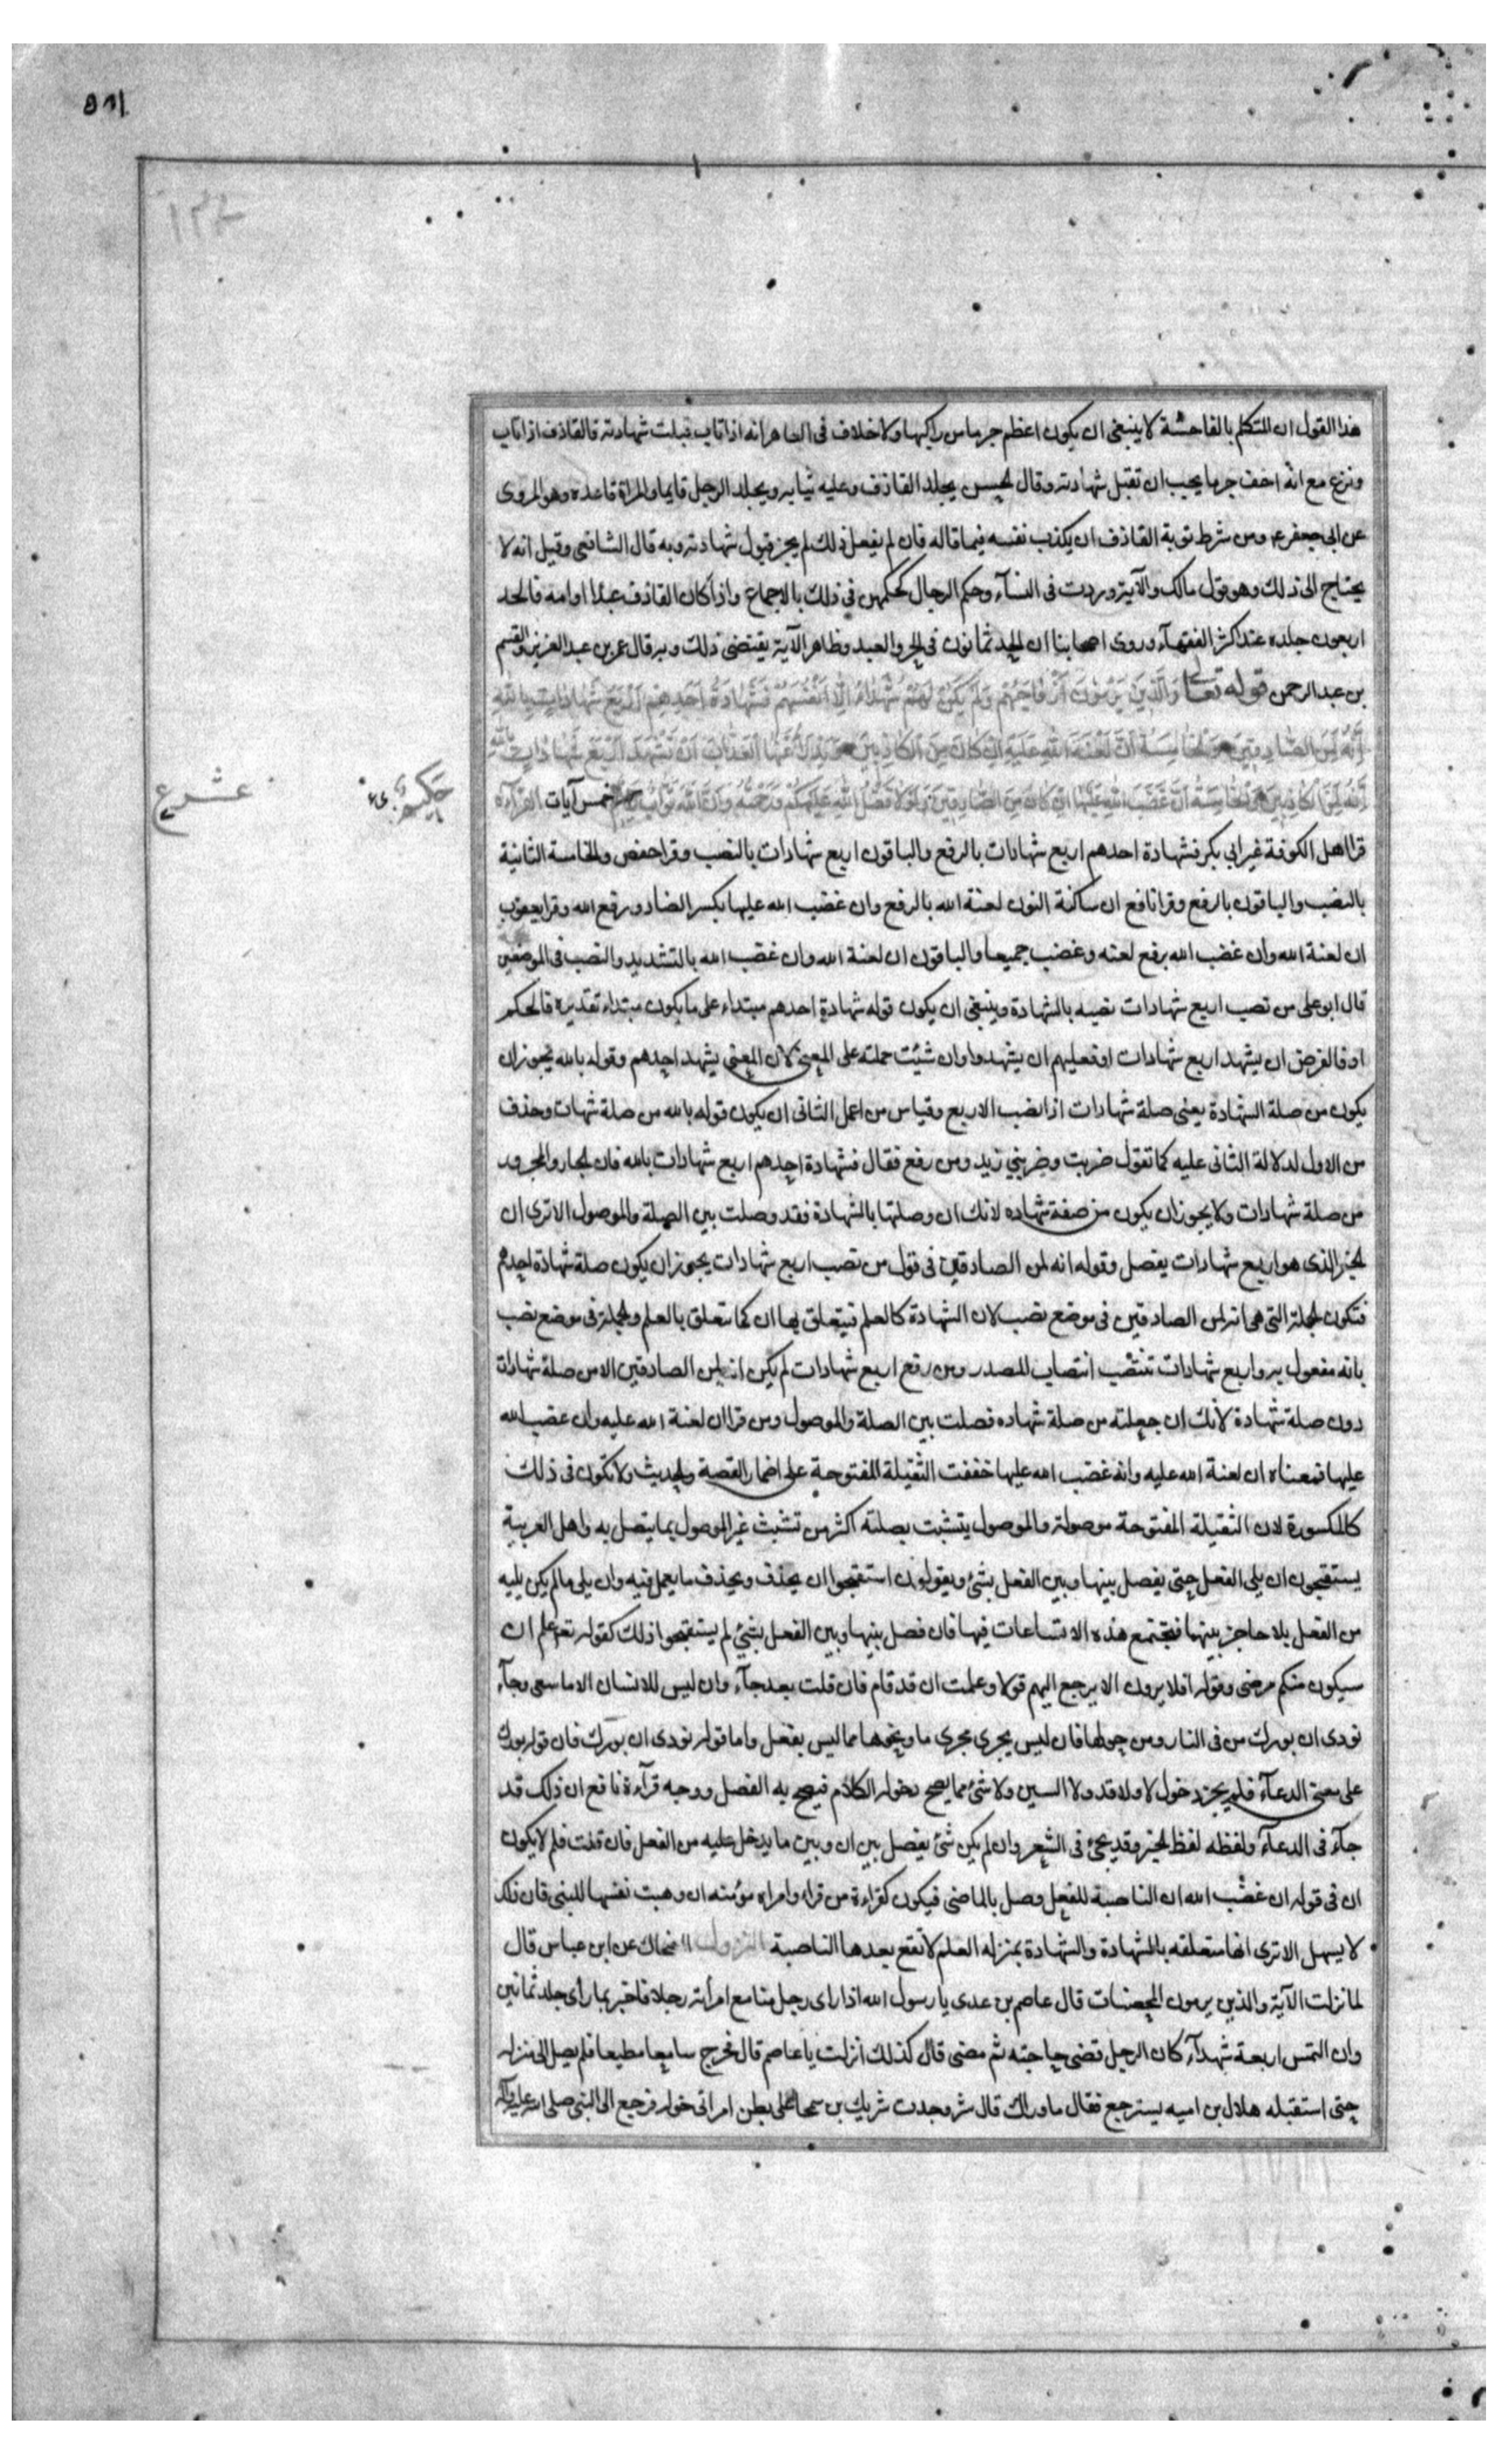 هذا القول ان المتكلم بالفاحشة لا ينبغي ان يكون اعظم جرما من راكبها ولا خلاف في العاهر انه اذا تاب قبلت شهادته فالقاذف اذا تاب
ونزع مع انه اخف جرما يجب ان تقبل شهادته وقال الحسن يجلد القاذف وعليه ثيابه ويجلد الرجل قايما والمراة قاعدة وهو المروى
عن ابي جعفر ع ومن شرط توبة القاذف ان يكذب نفسه فيما قاله فان لم يفعل ذلك لم يجز قبول شهادته وبه قال الشافعي وقيل انه لا
يحتاج الى ذلك وهو قول مالك والآية وردت في النسآء وحكم الرجال كحكمهن في ذلك بالاجماع واذا كان القاذف عبدا او امه فالحد
اربعون جلدة عند اكثر الفقهآء وروى اصحابنا ان الحد ثمانون في الحر والعبد وظاهر الآية يقتضي ذلك وبه قال عمر بن عبد العزيز والقسم
بن عبد الرحمن قوله تعالى وَالَّذِينَ يَرْمُونَ أَزْوَاجَهُمْ وَلَمْ يَكُنْ لَهُمْ شُهَدَاءُ إِلَّا أَنْفُسُهُمْ فَشَهَادَةُ أَحَدِهِمْ أَرْبَعُ شَهَادَاتٍ بِاللَّهِ
إِنَّهُ لَمِنَ الصَّادِقِينَ وَالْخَامِسَةُ أَنَّ لَعْنَةَ اللَّهِ عَلَيْهِ إِنْ كَانَ مِنَ الْكَاذِبِينَ وَيَدْرَأُ عَنْهَا الْعَذَابَ أَنْ تَشْهَدَ أَرْبَعَ شَهَادَاتٍ بِاللَّهِ
إِنَّهُ لَمِنَ الْكَاذِبِينَ وَالْخَامِسَةَ أَنَّ غَضَبَ اللَّهِ عَلَيْهَا إِنْ كَانَ مِنَ الصَّادِقِينَ وَلَوْلَا فَضْلُ اللَّهِ عَلَيْكُمْ وَرَحْمَتُهُ وَأَنَّ اللَّهَ تَوَّابٌ حَكِيمٌ خمس آيات القرآءة
عشر ع
قرا اهل الكوفة غير ابي بكر فشهادة احدهم اربع شهادات بالرفع والباقون اربع شهادات بالنصب وقرا حفص والخامسة الثانية
بالنصب والباقون بالرفع وقرا نافع ان ساكنة النون لعنة الله بالرفع وان غضب الله عليها بكسر الضاد ورفع الله وقرا يعقوب
ان لعنة الله وان غضب الله برفع لعنه وغضب جميعا والباقون ان لعنة الله وان غضب الله بالتشديد والنصب في الموضعين
قال ابو علي من نصب اربع شهادات نصبه بالشهادة وينبغي ان يكون قوله شهادة احدهم مبتداء على ما يكون مبتداء تقديره فالحكم
او فالفرض ان يشهد اربع شهادات او فعليهم ان يشهدوا وان شئت حملته على المعنى لان المعنى يشهد احدهم وقوله بالله يجوز ان
يكون من صلة الشهادة يعني صلة شهادات اذا نصب الاربع وقياس من اعمل الثاني ان يكون قوله بالله من صلة شهات وحذف
من الاول لدلالة الثاني عليه كما تقول ضربت وضربني زيد ومن رفع فقال فشهادة احدهم اربع شهادات بالله فان الجار والمجرور
من صلة شهادات ولا يجوز ان يكون من صفة شهاده لانك ان وصلتها بالشهادة فقد وصلت بين الصلة والموصول الا ترى ان
الخبر الذي هو اربع شهادات يفصل وقوله انه لمن الصادقين في قول من نصب اربع شهادات يجوز ان يكون صلة شهادة احدهم
فتكون الجملة التي هي انه لمن الصادقين في موضع نصب لان الشهادة كالعلم فيتعلق بها ان كما تتعلق بالعلم والجملة في موضع نصب
بانه مفعول به واربع شهادات تنتصب انتصاب المصدر ومن رفع اربع شهادات لم يكن انه لمن الصادقين الا من صلة شهادات
دون صلة شهادة لأنك ان جعلته من صلة شهاده فصلت بين الصلة والموصول ومن قرا ان لعنة الله عليه وان غضب الله
عليها فمعناه ان لعنة الله عليه وانه غضب الله عليها خففت الثقيلة المفتوحة على اضمار القصة والحديث ولا تكون في ذلك
كالمكسورة لان الثقيلة المفتوحة موصولة والموصول يتشبث بصلته اكثر من تشبث غير الموصول بما يتصل به واهل العربية
يستقبحون ان يلي الفعل حتى يفصل بينها وبين الفعل بشئ ويقولون استقبحوا ان يحذف ويحذف ما يعمل فيه وان يلي ما لم يكن يليه
من الفعل بلا حاجز بينهما فتجتمع هذه الاتساعات فيها فان فصل بينها وبين الفعل بشئ لم يستقبحوا ذلك كقوله تعم علم ان
سيكون منكم مرضى وقوله افلا يرون الا يرجع اليهم قولا وعلمت ان قد قام فان قلت بعد جآء وان ليس للانسان الا ما سعى وجآء
نودى ان بورك من في النار ومن حولها فان ليس يجري مجرى ما ونحوها مما ليس بفعل واما قوله نودى ان بورك فان قوله بورك
على معنى الدعآء فلم يجز دخول لا ولا قد ولا السين ولا شئ مما يصح دخوله الكلام فيصح به الفصل ووجه قرآءة نافع ان ذلك قد
جآء في الدعآء ولفظه لفظ الخبر وقد يجئ في الشعر وان لم يكن شئ يفصل بين ان وبين ما يدخل عليه من الفعل فان قلت فلم لا يكون
ان في قوله ان غضب الله ان الناصبة للفعل وصل بالماضي فيكون كقراءة من قراء وامراه مؤمنه ان وهبت نفسها للنبي فان ذلك
لا يسهل الا ترى انها متعلقه بالشهادة والشهادة بمنزله العلم لا تقع بعدها الناصبة النزول الضحاك عن ابن عباس قال
لما نزلت الآية والذين يرمون المحصنات قال عاصم بن عدى يا رسول الله اذا راى رجل منا مع امرأته رجلا فاخبر بما رأى جلد ثمانين
وان التمس اربعة شهدآء كان الرجل قضى حاجته ثم مضى قال كذلك انزلت يا عاصم قال فخرج سامعا مطيعا فلم يصل الى منزله
حتى استقبله هلال بن اميه يسترجع فقال ما وراك قال شر وجدت شريك بن سمحا على بطن امراتي خوله فرجع الى النبي صلى الله عليه وآله